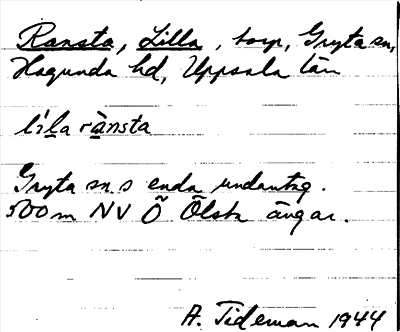 Ransta, Lilla, torp, Gryta sn,
Hagunda hd, Uppsala län
líla rànsta
Gryta sn s enda undantag.
500 m NV Ö Ölsta ängar.
A. Tideman 1944